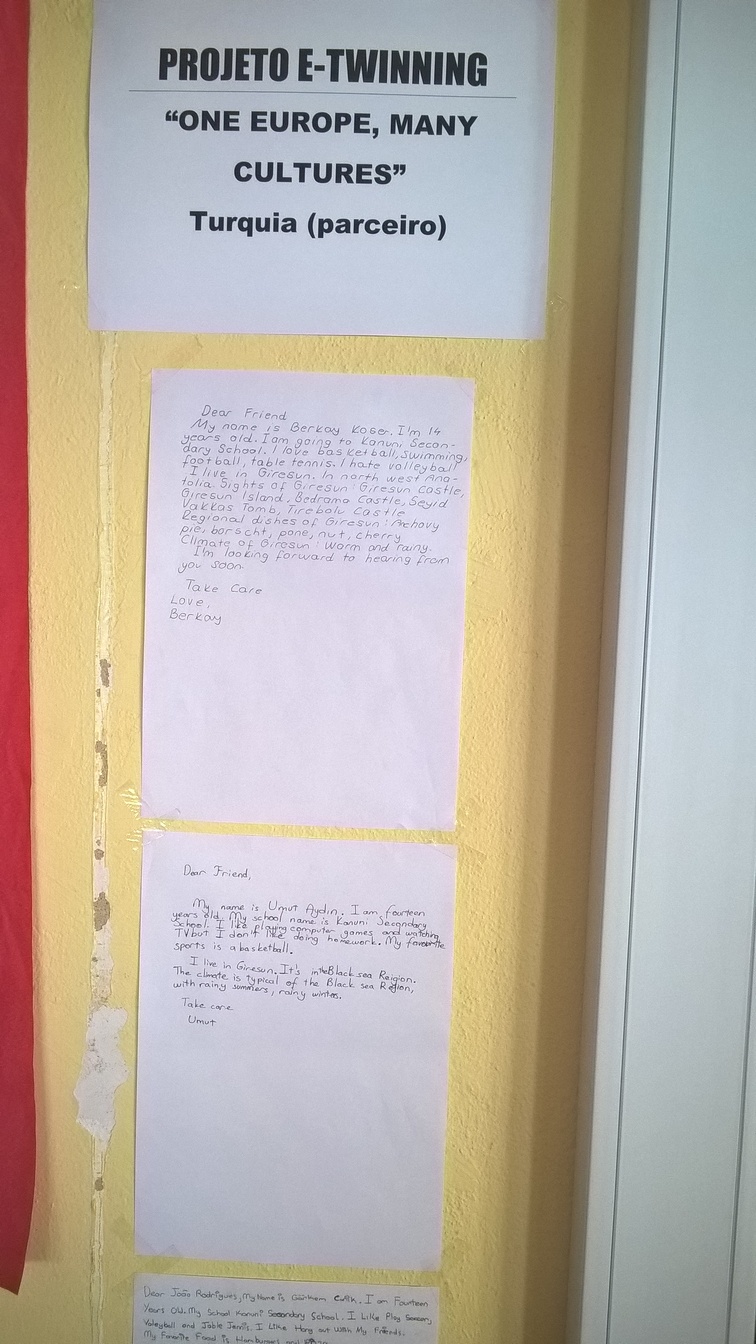 PROJETO E-TWINNING
“ONE EUROPE, MANY
CULTURES”
Turquia (parceiro)
Dear Friend
My name is Berkay Koser. I'm 14
years old. I am going to Kanuni Secon-
dary School. I love basketball, swimming,
football, table tennis. I hate volleyball
I live in Giresun. In north west Ana-
tolia. Sights of Giresun: Giresun Castle,
Giresun Island, Bedrama Castle, Seyid
Vakkas Tomb, Tirebolu Castle
Regional dishes of Giresun: Anchovy
pie, borscht, pone, nut, cherry
Climate of Giresun: Warm and rainy.
I'm looking forward to hearing from
you soon.
Take Care
Love,
Berkay
Dear Friend,
My name is Umut Aydın. I am fourteen
years old. My school name is Kanuni Secondary
School. I like playing computer games and watching
TV but I don't like doing homework. My favourite
sports is a basketball.
I live in Giresun. It's in the Black sea Reigion.
The climate is typical of the Black sea Region,
with rainy summers, rainy winters.
Take care
Umut
Dear João Rodrigues, My Name is I am Fourteen
Years Old. My School Kanuni Secondary School. I Like Play Soccer,
Voleyball and Table Tennis. I Like Hang out With My Friends.
My Favorite Food is Hamburger and